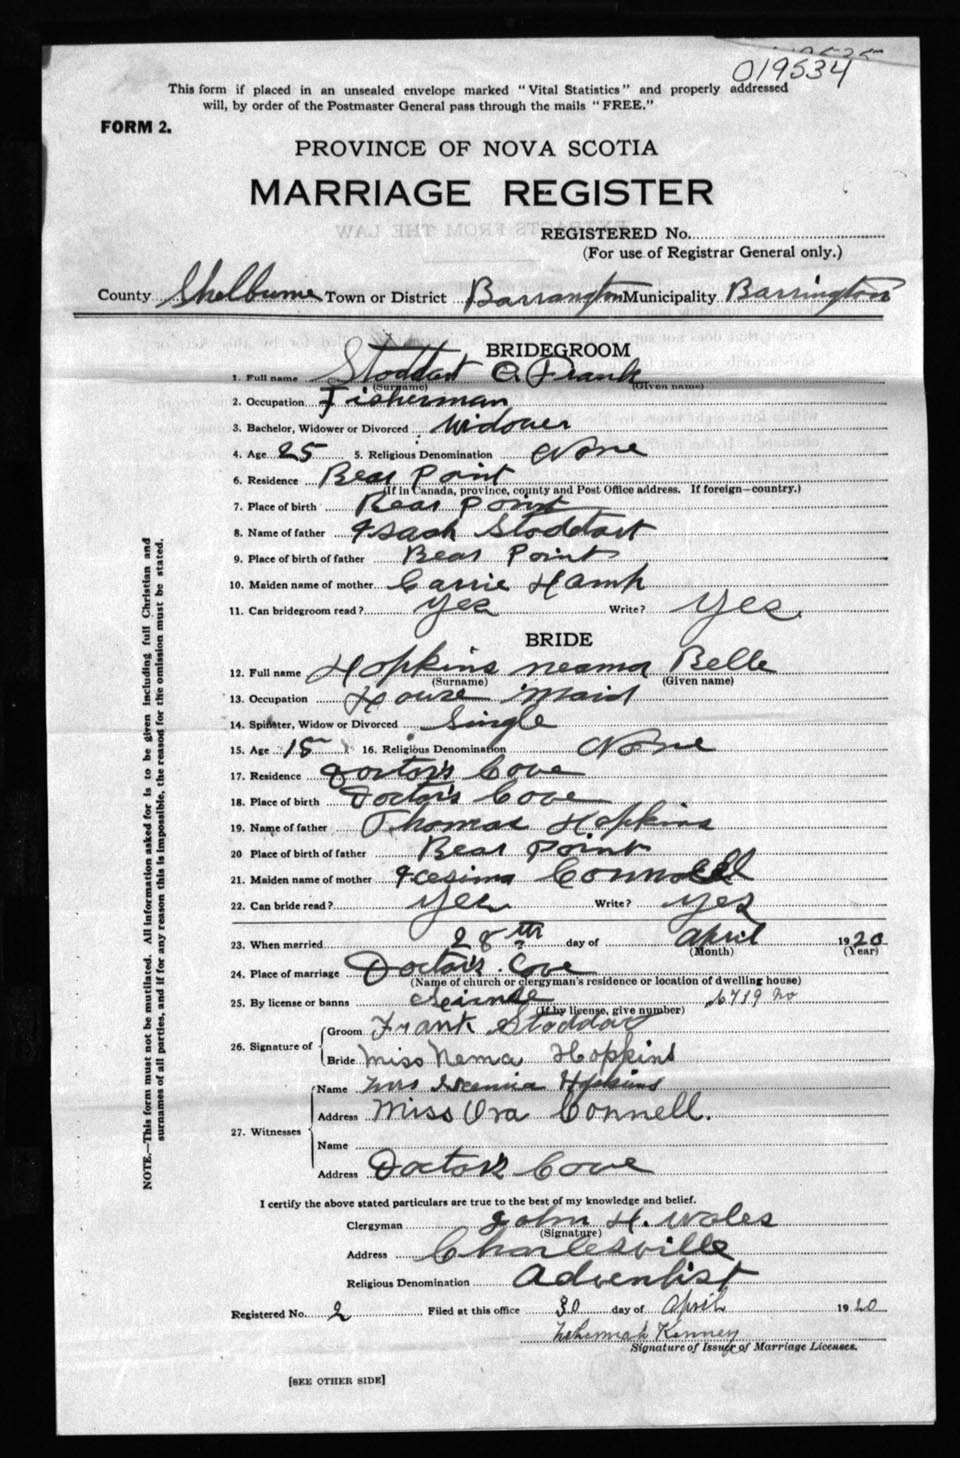 019534
This form if placed in an unsealed envelope marked "Vital Statistics" and properly addressed
will, by order of the Postmaster General pass through the mails "FREE."
FORM 2.
PROVINCE OF NOVA SCOTIA
MARRIAGE REGISTER
REGISTERED No.
(For use of Registrar General only.)
County Shelburne Town or District Barrangton Municipality Barrington
BRIDEGROOM
1. Full name Stoddart O. Frank
(Surname) (Given name)
2. Occupation Fisherman
3. Bachelor, Widower or Divorced Widower
4. Age 25 5. Religious Denomination None
6. Residence Bear Point
(If in Canada, province, county and Post Office address. If foreign—country.)
7. Place of birth Bear Point
8. Name of father Isach Stoddart
9. Place of birth of father Bear Point
10. Maiden name of mother Carrie
11. Can bridegroom read? yes Write? yes.
BRIDE
12. Full name Hopkins neama Belle
(Surname) (Given name)
13. Occupation House Maid
14. Spinster, Widow or Divorced Single
15. Age 15 16. Religious Denomination None
17. Residence Doctor's Cove
18. Place of birth Doctor's Cove
19. Name of father Thomas Hopkins
20 Place of birth of father Bear Point
21. Maiden name of mother
22. Can bride read? yes Write? yes
23. When married 28th day of April 1920
(Month) (Year)
24. Place of marriage Doctor's Cove
(Name of church or clergyman's residence or location of dwelling house)
25. By license or banns 6719 No
(If by license, give number)
26. Signature of
Groom Frank Stoddart
Bride Miss Nema Hopkins
27. Witnesses
Name Mrs Hopkins
Address Miss Ora Connell.
Name
Address Doctor's Cove
I certify the above stated particulars are true to the best of my knowledge and belief.
Clergyman John H. Wales
(Signature)
Address Charlesville
Religious Denomination Adventist
Registered No. 2 Filed at this office 30 day of April 1920
Nehemiah Kenney
Signature of Issuer of Marriage Licenses.
[SEE OTHER SIDE]
NOTE.—This form must not be mutilated. All information asked for is to be given including full Christian and
surnames of all parties, and if for any reason this is impossible, the reason for the omission must be stated.